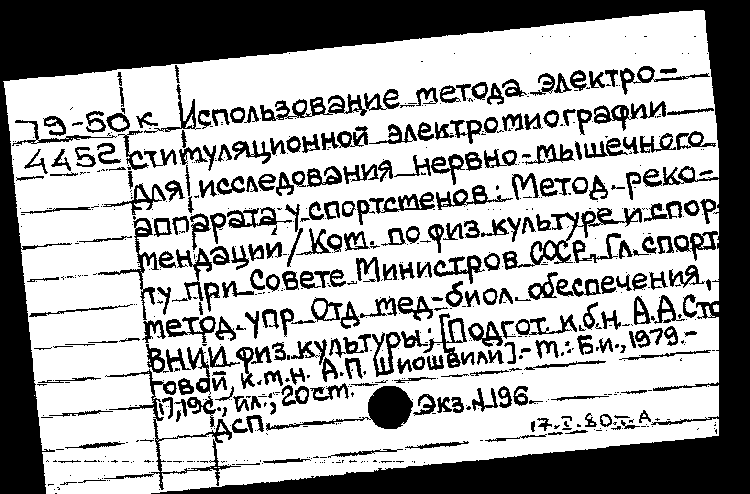 79-50к Использование метода электро-
4452 стимуляционной электромиографии
для исследования нервно-мышечного
аппарата у спортсменов: Метод. реко-
мендации / Ком. по физ. культуре и спор-
ту при Совете Министров СССР, Гл. спорт.
метод. упр. Отд. мед-биол. обеспечения,
ВНИИ физ. культуры; [Подгот. к.б.н. А.А. Сто
говой, к.м.н. А.П. Шиошвили].- М.: Б.и., 1979.-
[1], 19с., ил.; 20см.
ДСП. Экз. N 196
17.I.80г. А.